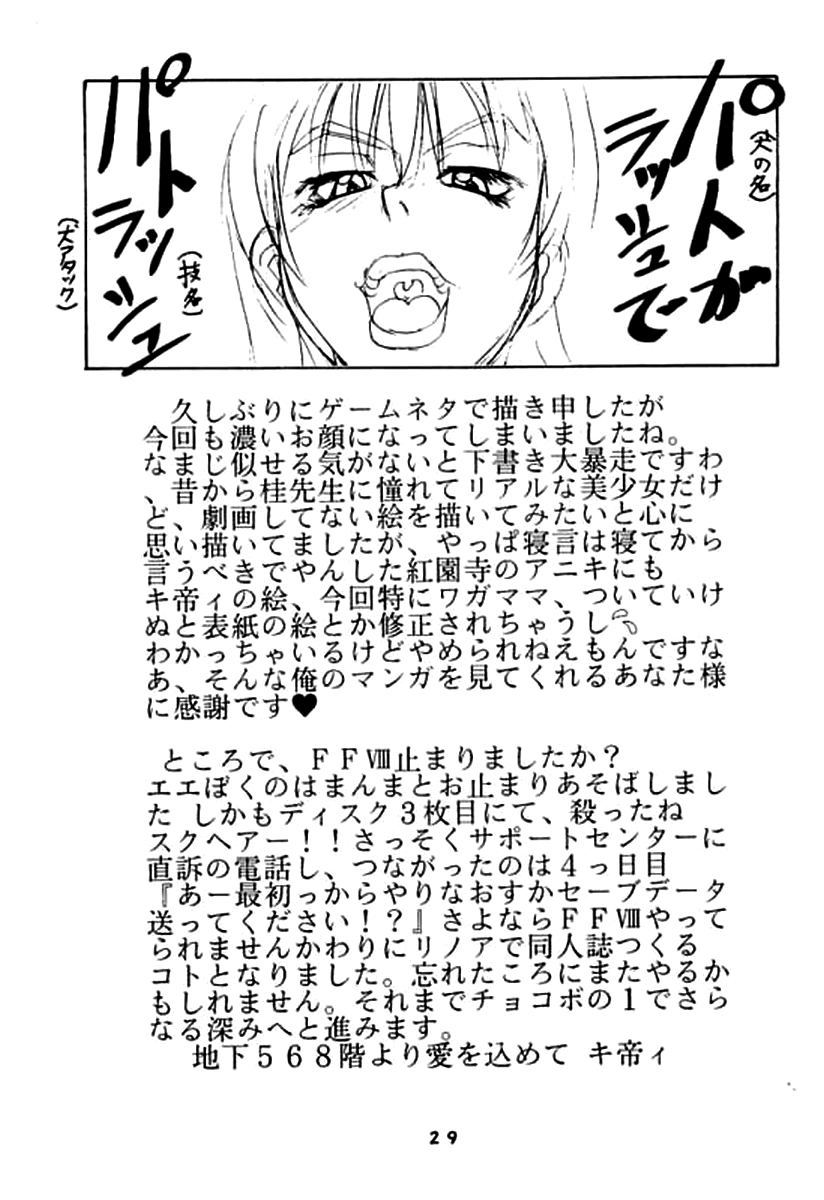 パトが
(犬の名)
ラッシュで
パト
ラッシュ
(技名)
(犬アタック)
久しぶりにゲームネタで描き申したが
今回も濃いお顔になってしまいましたね。
なまじ似せる気がないと下書き大暴走ですわ
、昔から桂先生に憧れてリアルな美少女だけ
ど、劇画してない絵を描いてみたいと心に
思い描いてましたが、やっぱ寝言は寝てから
言うべきでやんした紅園寺のアニキにも
キ帝ィの絵、今回特にワガママ、ついていけ
ぬと表紙の絵とか修正されちゃうし
わかっちゃいるけどやめられねえもんですな
あ、そんな俺のマンガを見てくれるあなた様
に感謝です♥
ところで、ＦＦⅧ止まりましたか？
エエぼくのはまんまとお止まりあそばしまし
た しかもディスク３枚目にて、殺ったね
スクヘアー！！さっそくサポートセンターに
直訴の電話し、つながったのは４っ日目
『あー最初っからやりなおすかセーブデータ
送ってください！？』さよならＦＦⅧやって
られませんかわりにリノアで同人誌つくる
コトとなりました。忘れたころにまたやるか
もしれません。それまでチョコボの１でさら
なる深みへと進みます。
地下５６８階より愛を込めて キ帝ィ
29